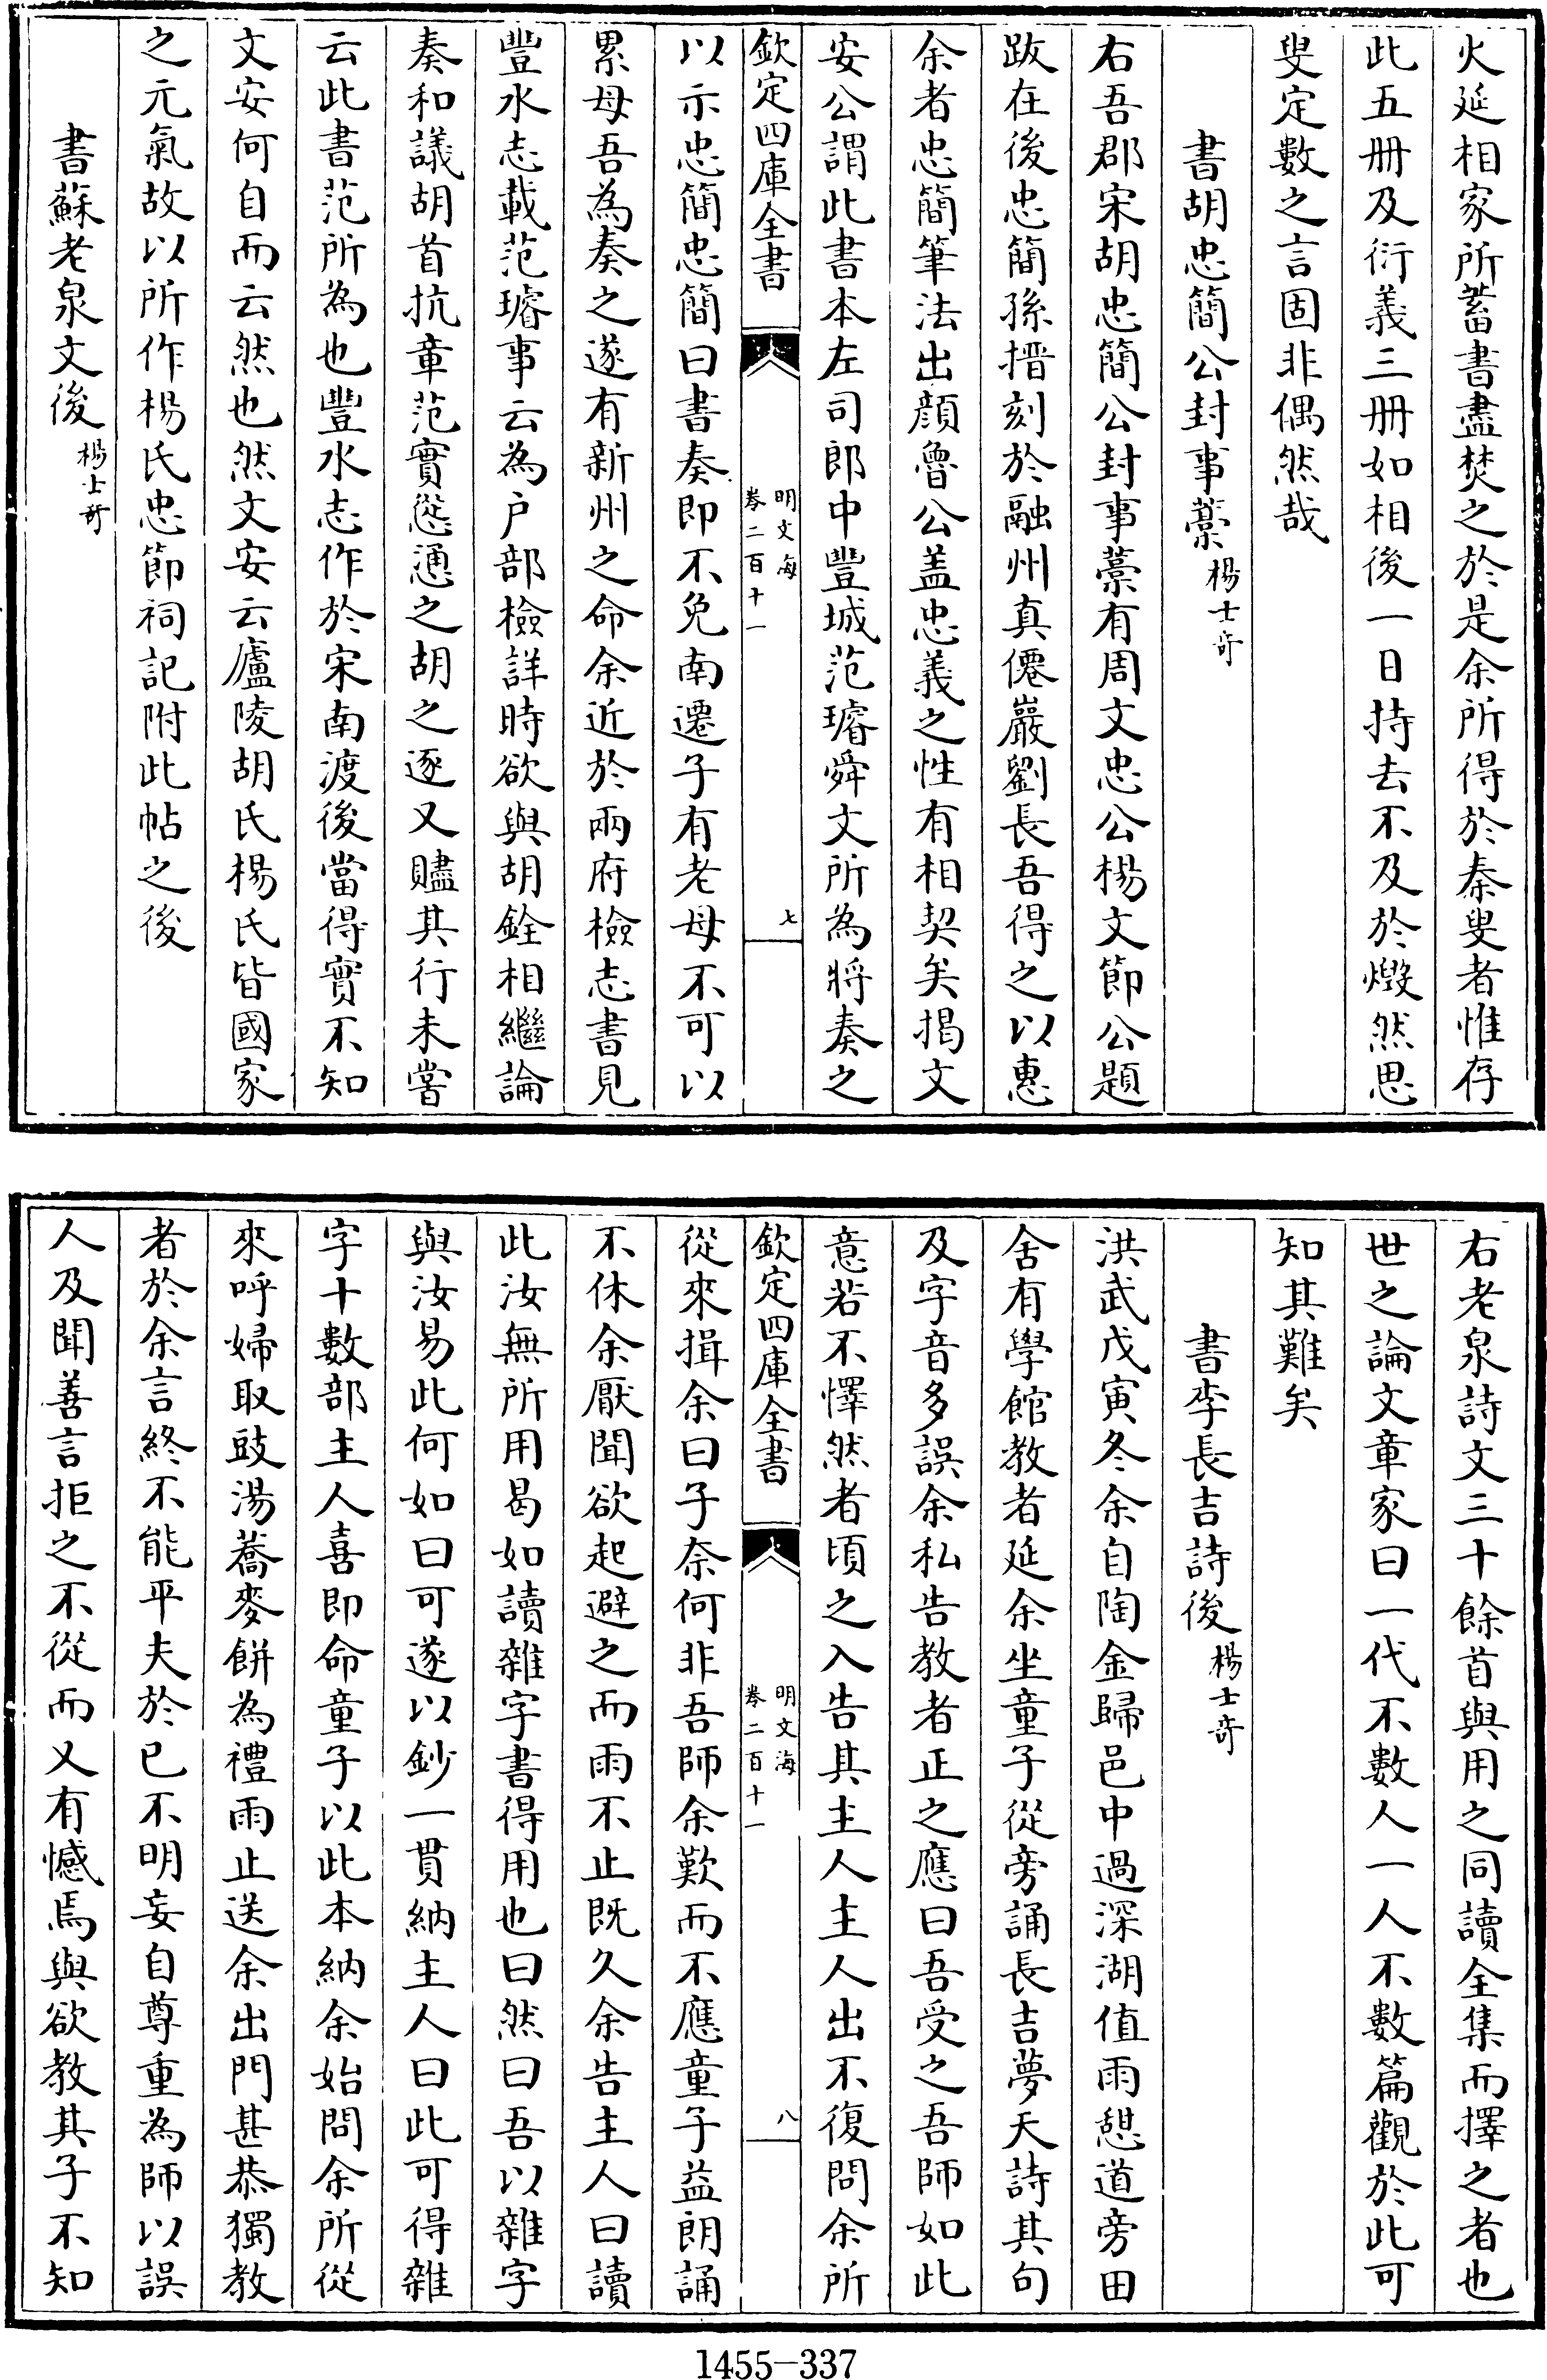 火延相家所蓄書盡焚之於是余所得於秦叟者惟存
此五册及衍義三册如相後一日持去不及於燬然思
叟定數之言固非偶然哉
書胡忠簡公封事藁楊士奇
右吾郡宋胡忠簡公封事藁有周文忠公楊文節公題
跋在後忠簡孫搢刻於融州真僊巖劉長吾得之以惠
余者忠簡筆法出顔魯公盖忠義之性有相契矣揭文
安公謂此書本左司郎中豐城范璿舜文所為將奏之
欽定四庫全書
明文海
卷二百十一
七
以示忠簡忠簡曰書奏即不免南遷子有老母不可以
累母吾為奏之遂有新州之命余近於兩府檢志書見
豐水志載范璿事云為户部檢詳時欲與胡銓相繼論
奏和議胡首抗章范實慫慂之胡之逐又贐其行未嘗
云此書范所為也豐水志作於宋南渡後當得實不知
文安何自而云然也然文安云廬陵胡氏楊氏皆國家
之元氣故以所作楊氏忠節祠記附此帖之後
書蘇老泉文後楊士奇
右老泉詩文三十餘首與用之同讀全集而擇之者也
世之論文章家曰一代不數人一人不數篇觀於此可
知其難矣
書李長吉詩後楊士奇
洪武戊寅冬余自陶金歸邑中過深湖值雨憇道旁田
舍有學館教者延余坐童子從旁誦長吉夢天詩其句
及字音多誤余私告教者正之應曰吾受之吾師如此
意若不懌然者頃之入告其主人主人出不復問余所
欽定四庫全書
明文海
卷二百十一
八
從來揖余曰子奈何非吾師余歎而不應童子益朗誦
不休余厭聞欲起避之而雨不止既久余告主人曰讀
此汝無所用曷如讀雜字書得用也曰然曰吾以雜字
與汝易此何如曰可遂以鈔一貫納主人曰此可得雜
字十數部主人喜即命童子以此本納余始問余所從
來呼婦取豉湯蕎麥餅為禮雨止送余出門甚恭獨教
者於余言終不能平夫於已不明妄自尊重為師以誤
人及聞善言拒之不從而又有憾焉與欲教其子不知
1455-337